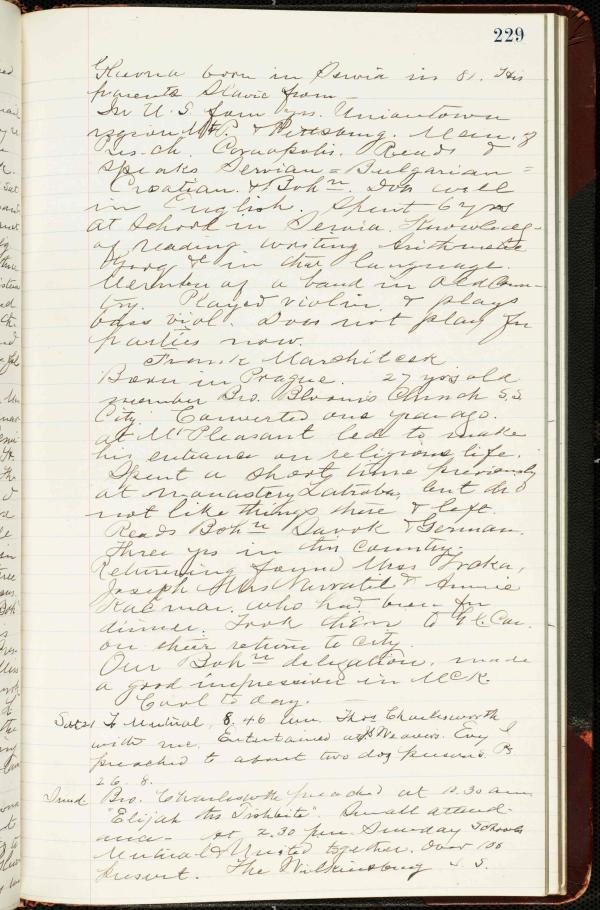 229
born in Servia in 81. His
parents Slavic from
In U.S. four yrs. Uniontown
region Mt P. & Pittsburg. Mem. of
Pres. Ch. Coraopolis. Reads &
speaks Servian = Bulgarian =
Croatian & Bohn. Does well
in English. Spent 6 yrs
at School in Servia. Knowledge
of reading writing Arithmetic
Geog &c in that language.
Member of a band in Old Coun-
try. Played violin & plays
bass viol. Does not play for
parties now.
Frank
Born in Prague. 27 yrs old
member Bro. Church S.S.
City. Converted one year ago.
at Mt Pleasant led to make
his entrance on religious life.
Spent a short time previously
at monastery Latrobe, but did
not like things there & left.
Reads Bohn Slavok & German.
Three yrs in this country.
Returning found Miss
Joseph Mrs & Annie
who had been for
dinner. Took them to Car
on their return to city.
Our Bohn delegation made
a good impression in McK.
Cool to day.
Sat 21 To Mutual, 8.46 am. Thos Charlesworth
with me. Entertained at Weavers. Evg I
preached to about two doz persons. Ps
26. 8.
Bro. Charlesworth preached at 10.30 am
"Elijah the Tishbite". Small attend-
ance. At 2.30 pm. Sunday Schools
Mutual & United together. Over 100
present. The Wilkinsburg S.S.